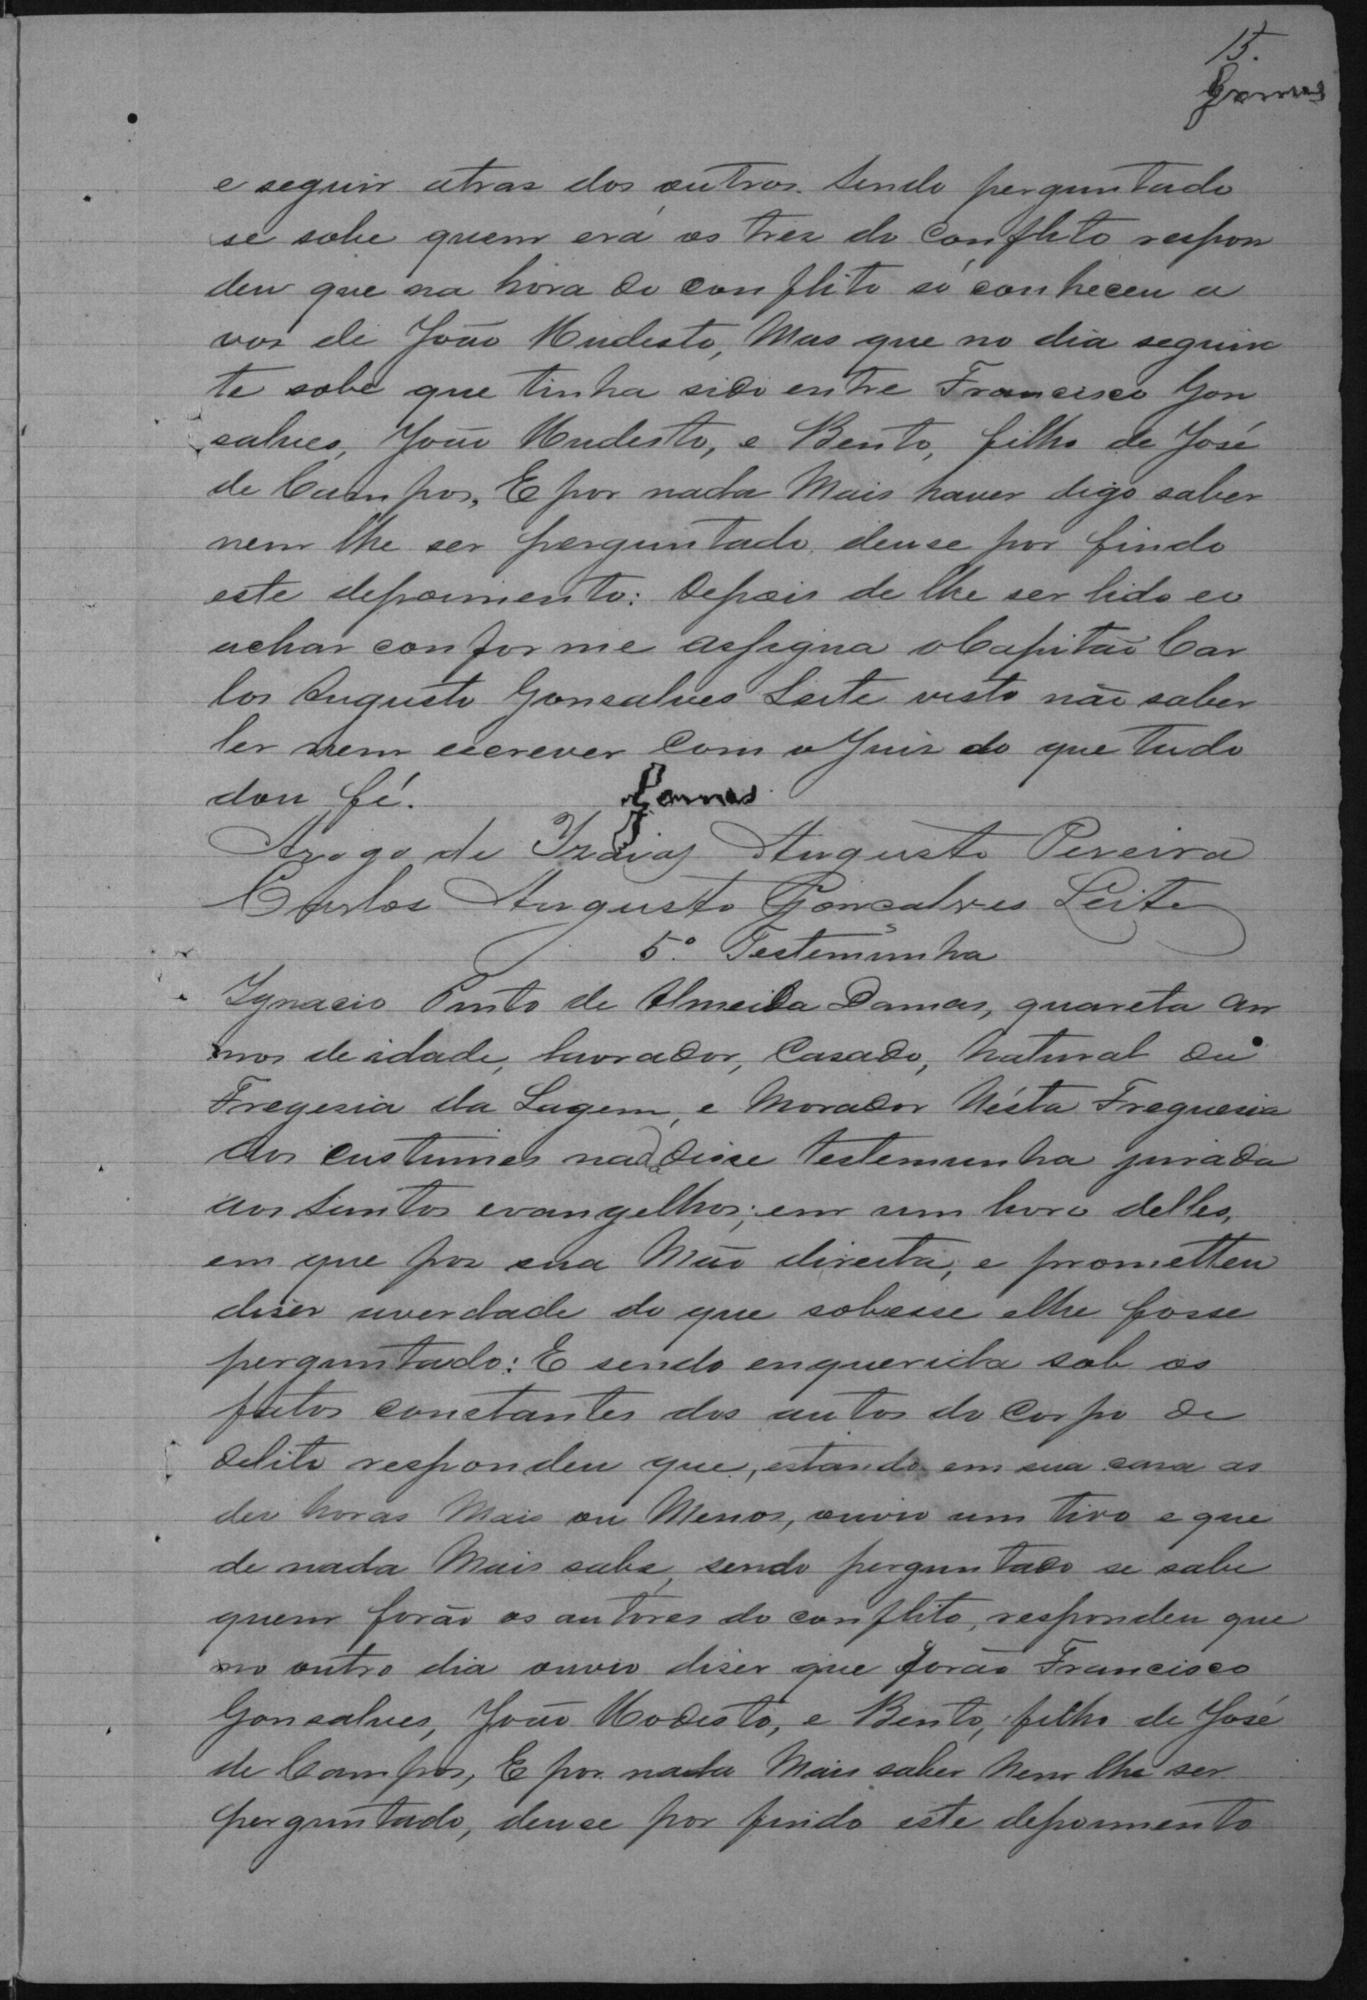 15.
Gomes
e seguir atraz dos outros. Sendo perguntado
se sobe quem erá os trez do Conflito respon
deu que na hora do conflito só conheceu a
vos de João Mudesto, Mas que no dia seguin
te sobe que tinha sido entre Francisco Gon
salves, João Mudesto, e Bento, filho de José
de Campos, E por nada Mais haver digo saber
nem lhe ser perguntado, deuse por findo
este depoimento: Depois de lhe ser lido eo
achar conforme assigna o Capitão Car
los Augusto Gonsalves Leite visto não saber
ler nem escrever Com o Juis do que tudo
dou fé.
Gomes
Arogo de Izaias Augusto Pereira
Carlos Augusto Gonçalves Leite
5º Testemunha
Ignacio Pinto de Almeida Damas, quareta an
nos de idade, lavrador, Casado, Natural da
Fregesia da Lagem, e Morador Nésta Freguesia
aos custumes nada disse testemunha jurada
aos Santos evangelhos; em um livro delles,
em que pos sua Mão direita, e prometteu
diser averdade do que sobesse elhe fosse
perguntado: E sendo enquerida sob os
fatos constantes dos autos do corpo de
delito respondeu que, estando em sua casa as
des horas Mais ou Menos, ouvio um tiro e que
de nada Mais sabe, sendo perguntado se sabe
quem forão os autores do conflito, respondeu que
no outro dia ouvio diser que forão Francisco
Gonsalves, João Modesto, e Bento, filho de José
de Campos, E por nada Mais saber Nem lhe ser
perguntado, deuse por findo este depoimento